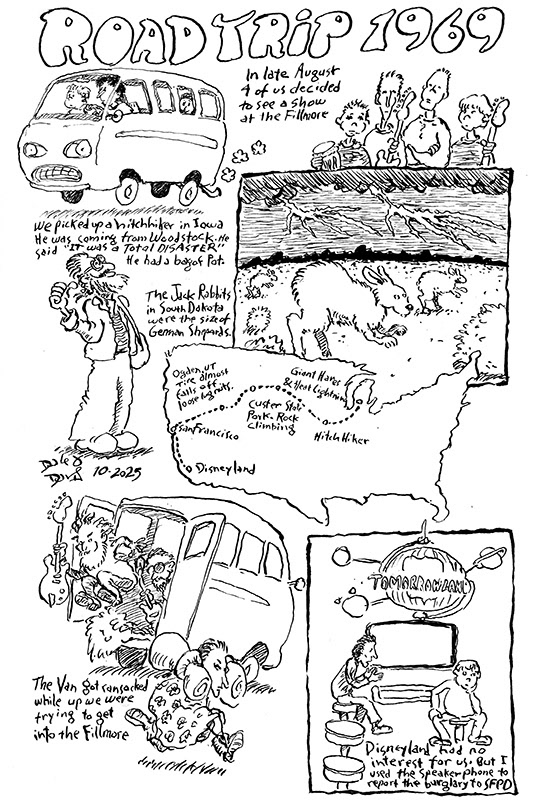 ROAD TRIP 1969
In late August
4 of us decided
to see a show
at the Fillmore
We picked up a hitchhiker in Iowa
He was coming from Woodstock. He
said "IT WAS A TOTAL DISASTER"
He had a bag of Pot.
The Jack Rabbits
in South Dakota
were the size of
German Shpards.
Ogden, UT
Tire almost
falls off
loose lugnuts.
Giant Hares
& Heat Lightning
Custer State
Park. Rock
Climbing
San Francisco
HitchHiker
Disneyland
10-2025
The Van got ransacked
while up we were
trying to get
into the Fillmore
TOMARROWLAND
Disneyland had no
interest for us. But I
used the speaker phone to
report the burglary to SFPD